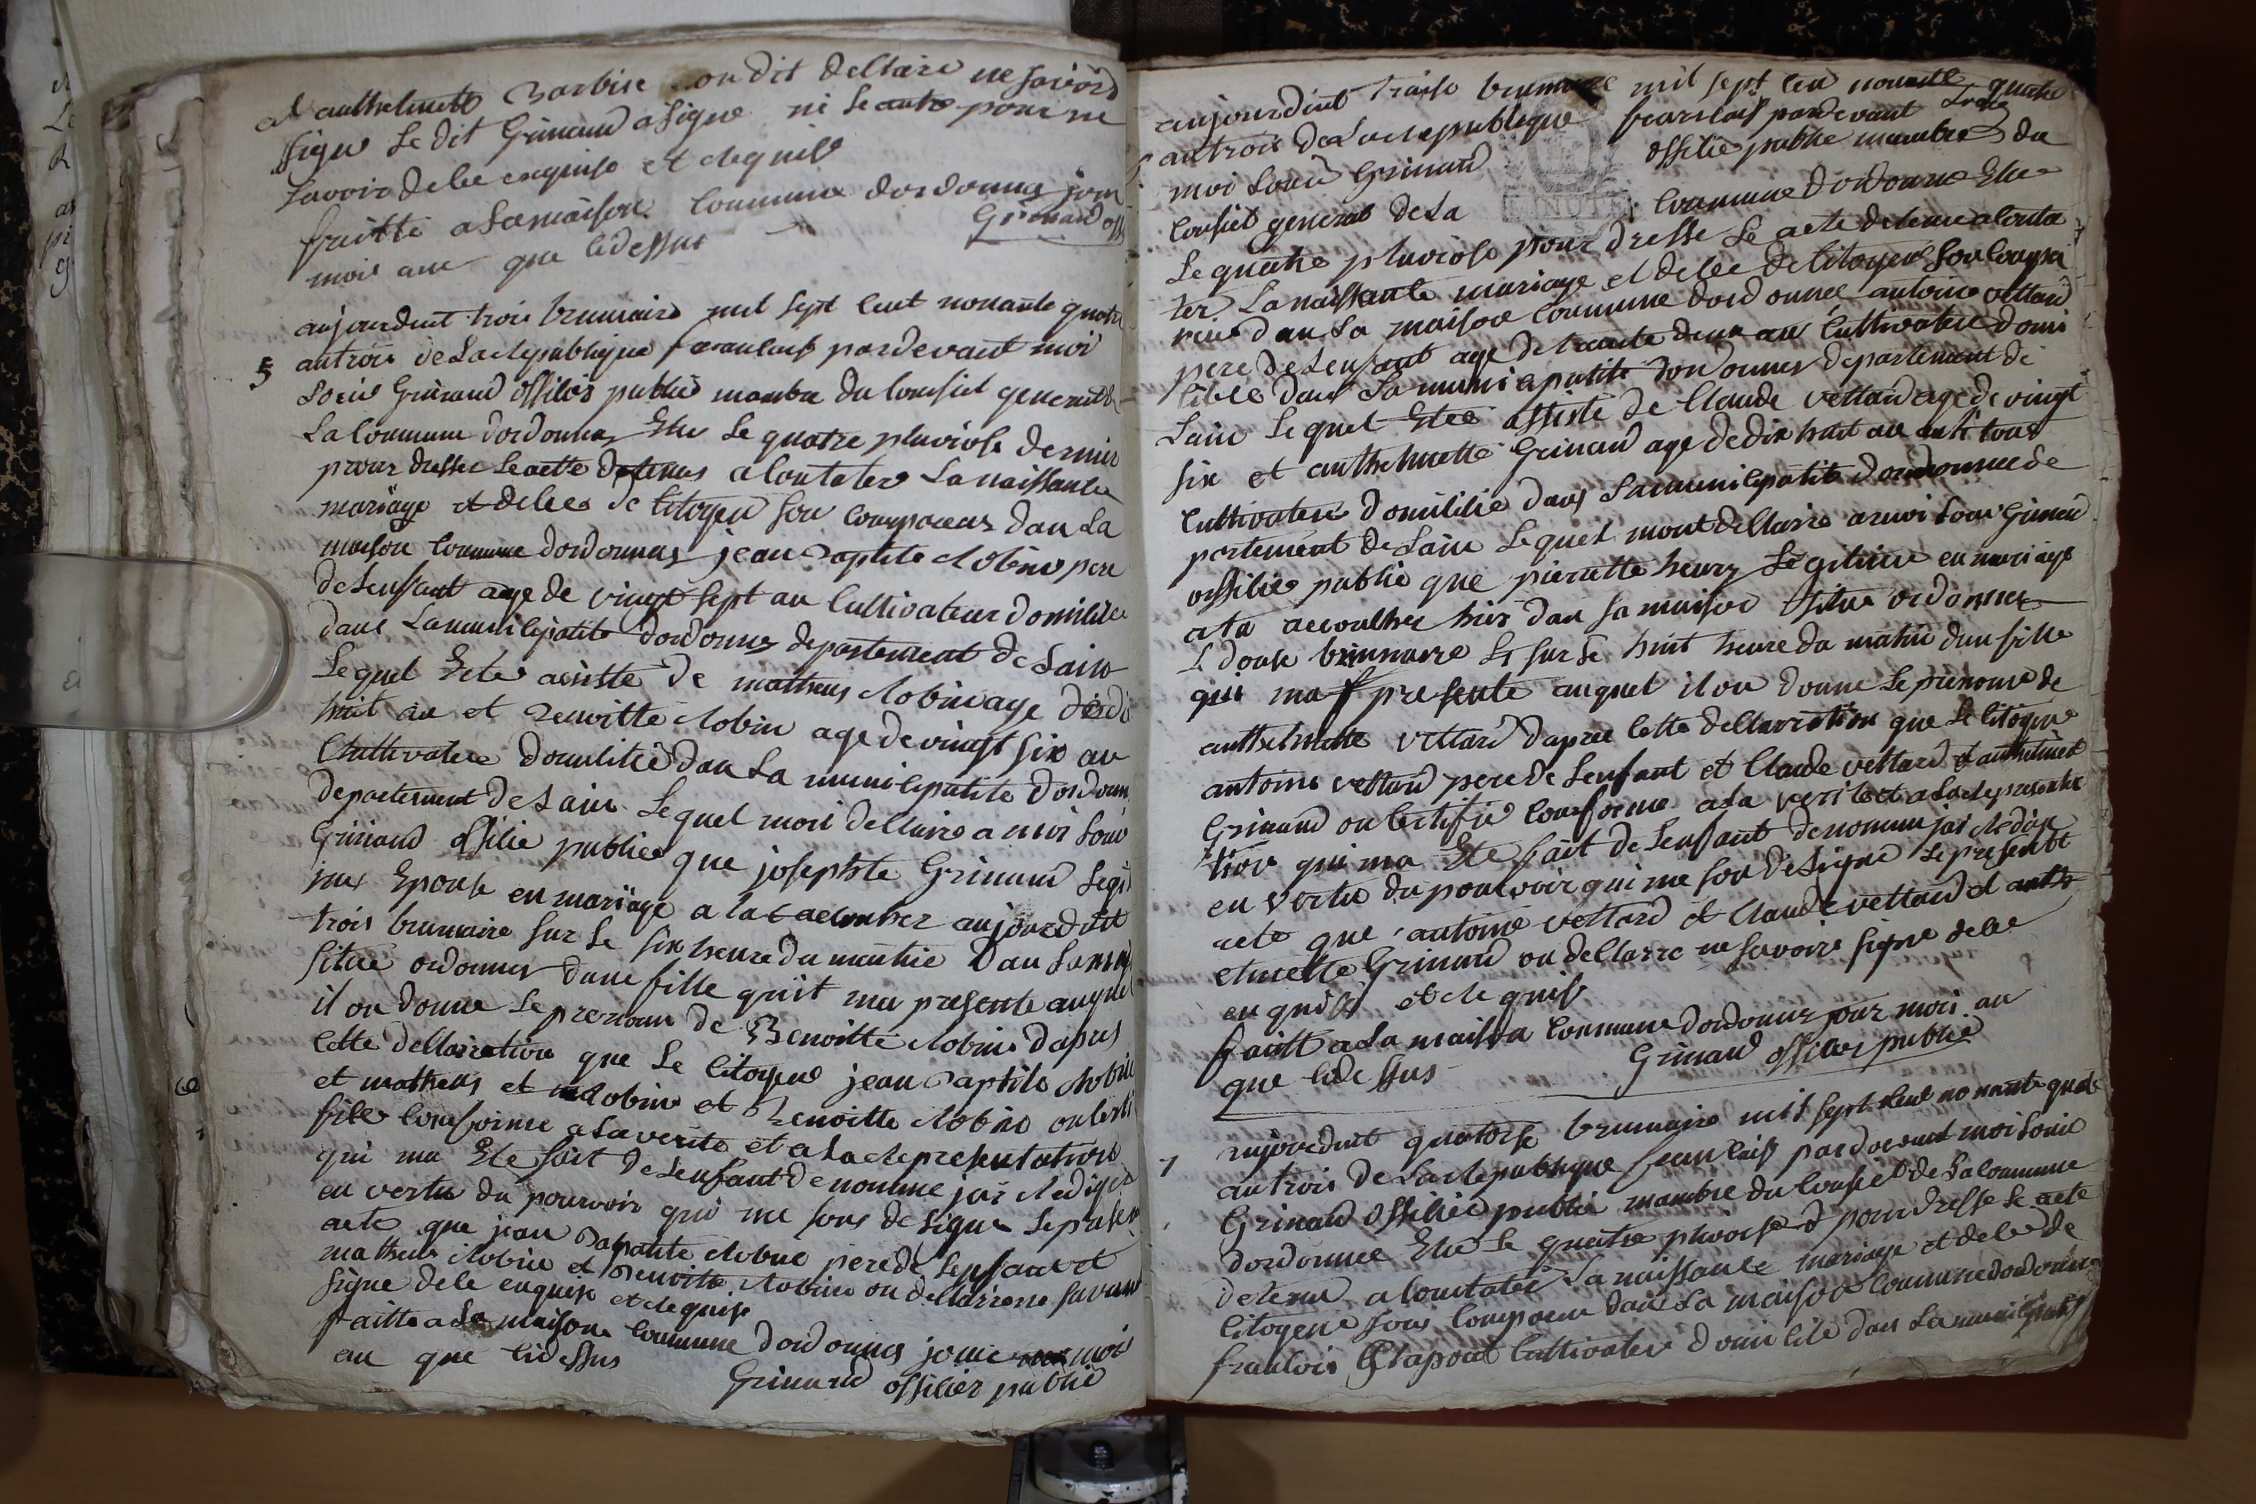 et anthelmette Barbise on dit dellaire ne savoir
signe Le dit Grinand a signe ni Le autre pour ne
savoir de lce enquise et requise
fraitte a La maison Commune dordonnas jour
mois ans que cidessus Grinand off
5
aujourduit trois brumaire mil sept cent nonante quatre
an trois de La Republique francaise pardevant moi
Louis Grinand officier public manbre du Consiel generalle
La Commune dordonnas Elu Le quatre pluviose dernier
pour dresser Le acte detenus a Contater La naissance
mariage et deces de Citoyen son Composeur dan La
maison Commune dordonnas jean Baptiste Robin pere
de Lenfant age de vingt sept an Cultivateur domilie
dans La municipalite dordonnas departement de Lain
Lequel Ete assiste de matheus Robin age de di
huit an et Benoitte Robin age de vingt six an
Cultivatere domilitie dan La municipalite dordonn
departement de Lain Lequel moi dellaire a moi Louis
Grinand offilie publice que josephte Grinand Legi
ime Epouse en mariage a la accouher aujourduit
trois brumaire sur Le six heure du matin dan La mai
situe ordonnas dune fille quit ma presente auquel
il on donne Le prenom de Benoitte Robin dapres
Cette dellairation que Le Citoyen jean Baptite Robin
et matheus et Robin et Benoitte Robin on certi
file Conforme a La verite et a La representation
qui ma Ete fait de Lenfant denomme jai Rediger
en vertu du pouvoir qui me sons designe Le presen
acte que jean Babatite Robin pere de Lenfant et
matheus Robin et Benoitte Robin on dellaire ne savoir
signe dele enquise et requise
faitte a La maison Commune dordonnas jour mois
an que cidessus Grinard offilier public
aujourduit traise brumaire mil sept cen nonante quatre
an trois de La Republique francaise pardevant
moi Louis Grinand offilie public manbre du
Consiel general de La Commune dordonnas Elue
Le quatre pluviose pour dresse Le acte detenue a Conta
ter La naissante mariage et dele de Citoyen son Compoz
reur dan La maison Commune dordonnas antoine vettard
pere de Lenfant age de trante deux an Cultivatere domi
lile dans La municipalite dordonnas departement de
Lain Lequel Ete assiste de Claude vettard age de vingt
six et anthelmette Grinand age de dix huit an tous
Cultivatere domililie dans La municipalite dordonnas de
partement de Lain Lequel mont dellaire a moi Louis Grinand
offilie public que pierrette henry Legitime en mariage
ata accoulher hier dan sa maison situe ordonnas
L douse brumaire sur Le huit heure du matin dun fille
qui ma presente auquel il on donne Le prenome de
anthelmette vettard dapree Cette dellairation que Le Citoyen
antoine vettard pere de Lenfant et Claude vettard et anthelmet
Grinand on Certifie Conforme a La verite et a La representa
tion qui ma Ete fait de Lenfant denomme jai Redige
en vertu du pouvoir qui me son designe Le present
acte que antoine vettard et Claude vettard et anth
elmette Grinand on dellaire ne savoir signe dele
enquise et requise
faitt a La maison Commune dordonnas jour mois an
que cidessus Grinand offilier public
7
aujourduit quatorse brumaire mil sept cent nonante quatre
an trois de La Republique francaise pardevant moi Louis
Grinand offilier public manbre du Consiel de La Commune
dordonnas Elu Le quatre pluviose pour dresse Le acte
detenu a Contater La naissante mariage et dele de
Citoyene son Compoeur dan La maison Commune dordonnas
francois Chapout Cultivatere domilile dan La municipalite